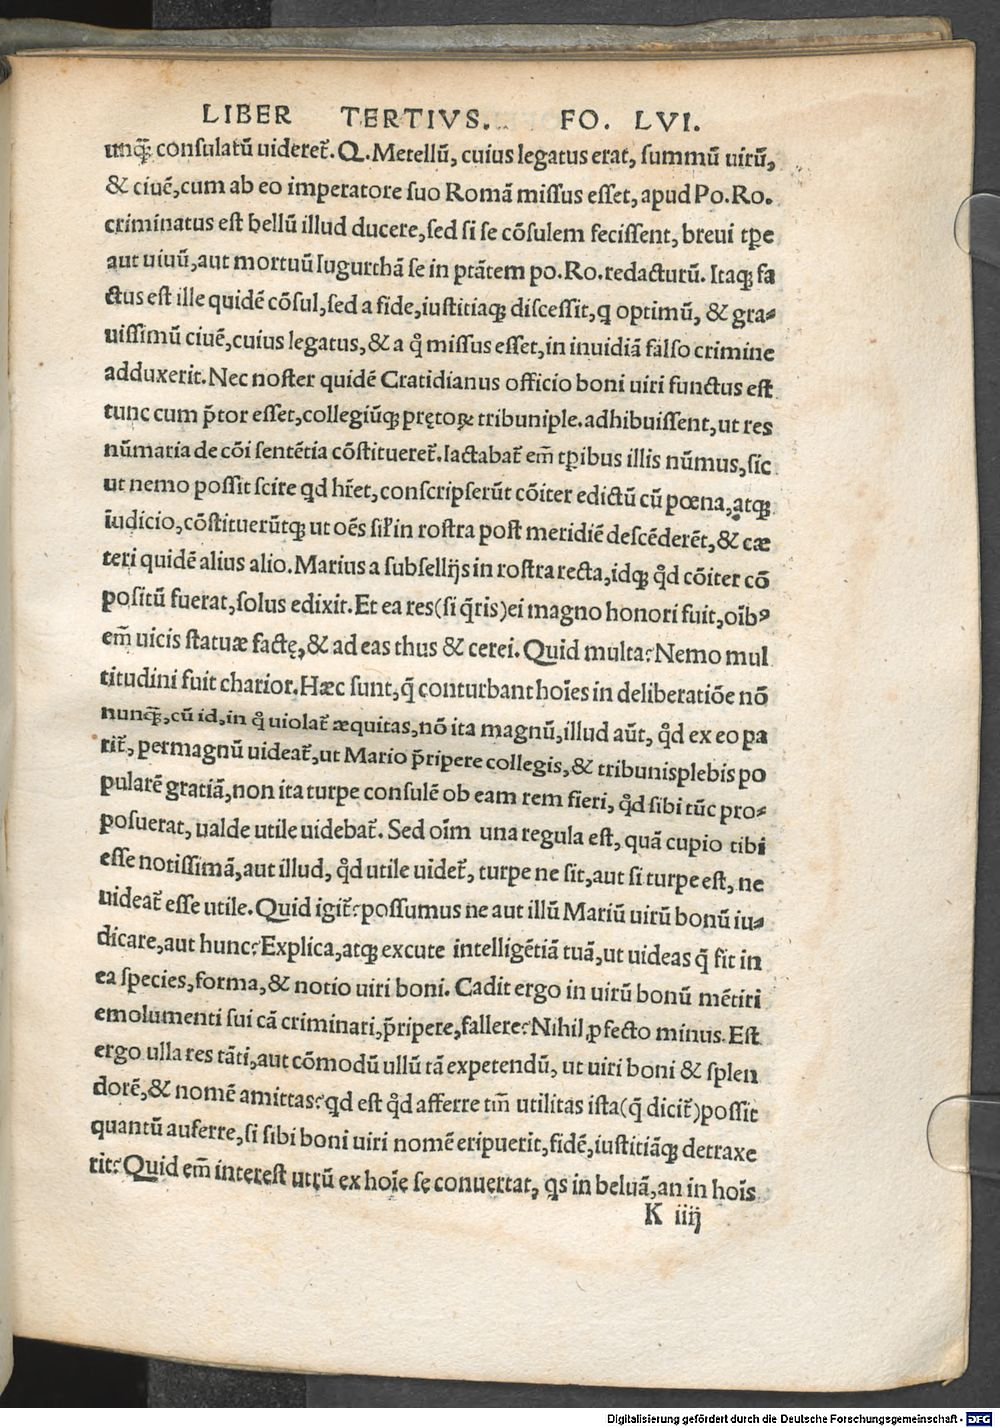 LIBER TERTIVS. FO. LVI.
unq̃ꝫ consulatũ uideret̃. Q. Metellũ, cuius legatus erat, summũ uirũ,
& ciuẽ, cum ab eo imperatore suo Romã missus esset, apud Po. Ro.
criminatus est bellũ illud ducere, sed si se cõsulem fecissent, breui tp̃e
aut uiuũ, aut mortuũ Iugurthã se in ptãtem po. Ro. redacturũ. Itaqꝫ fa
ctus est ille quidẽ cõsul, sed a fide, iustitiaqꝫ discessit, q optimũ, & gra⸗
uissimũ ciuẽ, cuius legatus, & a q̊ missus esset, in inuidiã falso crimine
adduxerit. Nec noster quidẽ Gratidianus officio boni uiri functus est
tunc cum p̃tor esset, collegiũqꝫ prętoꝝ tribuniple. adhibuissent, ut res
nũmaria de cõi sentẽtia cõstitueret̃. Iactabat̃ em̃ tp̃ibus illis nũmus, sic
ut nemo possit scire qd hr̃et, conscripserũt cõiter edictũ cũ pœna, atqꝫ
iudicio, cõstituerũtqꝫ ut oẽs sil̃ in rostra post meridiẽ descẽderẽt, & cæ
teri quidẽ alius alio. Marius a subsellijs in rostra recta, idqꝫ qđ cõiter cõ
positũ fuerat, solus edixit. Et ea res (si q̃ris) ei magno honori fuit, oĩbꝰ
em̃ uicis statuæ factę, & ad eas thus & cerei. Quid multa? Nemo mul
titudini fuit charior. Hæc sunt, q̃ conturbant hoĩes in deliberatiõe nõ
nunq̃ꝫ, cũ id, in q̊ uiolat̃ æquitas, nõ ita magnũ, illud aũt, qđ ex eo pa
rit̃, permagnũ uideat̃, ut Mario p̃ripere collegis, & tribunisplebis po
pularẽ gratiã, non ita turpe consulẽ ob eam rem fieri, qđ sibi tũc pro⸗
posuerat, ualde utile uidebat̃. Sed oĩm una regula est, quã cupio tibi
esse notissimã, aut illud, qđ utile uidet̃, turpe ne sit, aut si turpe est, ne
uideat̃ esse utile. Quid igit̃? possumus ne aut illũ Mariũ uirũ bonũ iu⸗
dicare, aut hunc? Explica, atqꝫ excute intelligẽtiã tuã, ut uideas q̃ sit in
ea species, forma, & notio uiri boni. Cadit ergo in uirũ bonũ mẽtiri
emolumenti sui cã criminari, p̃ripere, fallere? Nihil ꝓfecto minus. Est
ergo ulla res tãti, aut cõmodũ ullũ tã expetendũ, ut uiri boni & splen
dorẽ, & nomẽ amittas? qd est qđ afferre tm̃ utilitas ista (q̃ dicit̃) possit
quantũ auferre, si sibi boni uiri nomẽ eripuerit, fidẽ, iustitiãqꝫ detraxe
rit? Quid em̃ interest utrũ ex hoĩe se conuertat, qs in beluã, an in hoĩs
K iiij
Digitalisierung gefördert durch die Deutsche Forschungsgemeinschaft - DFG